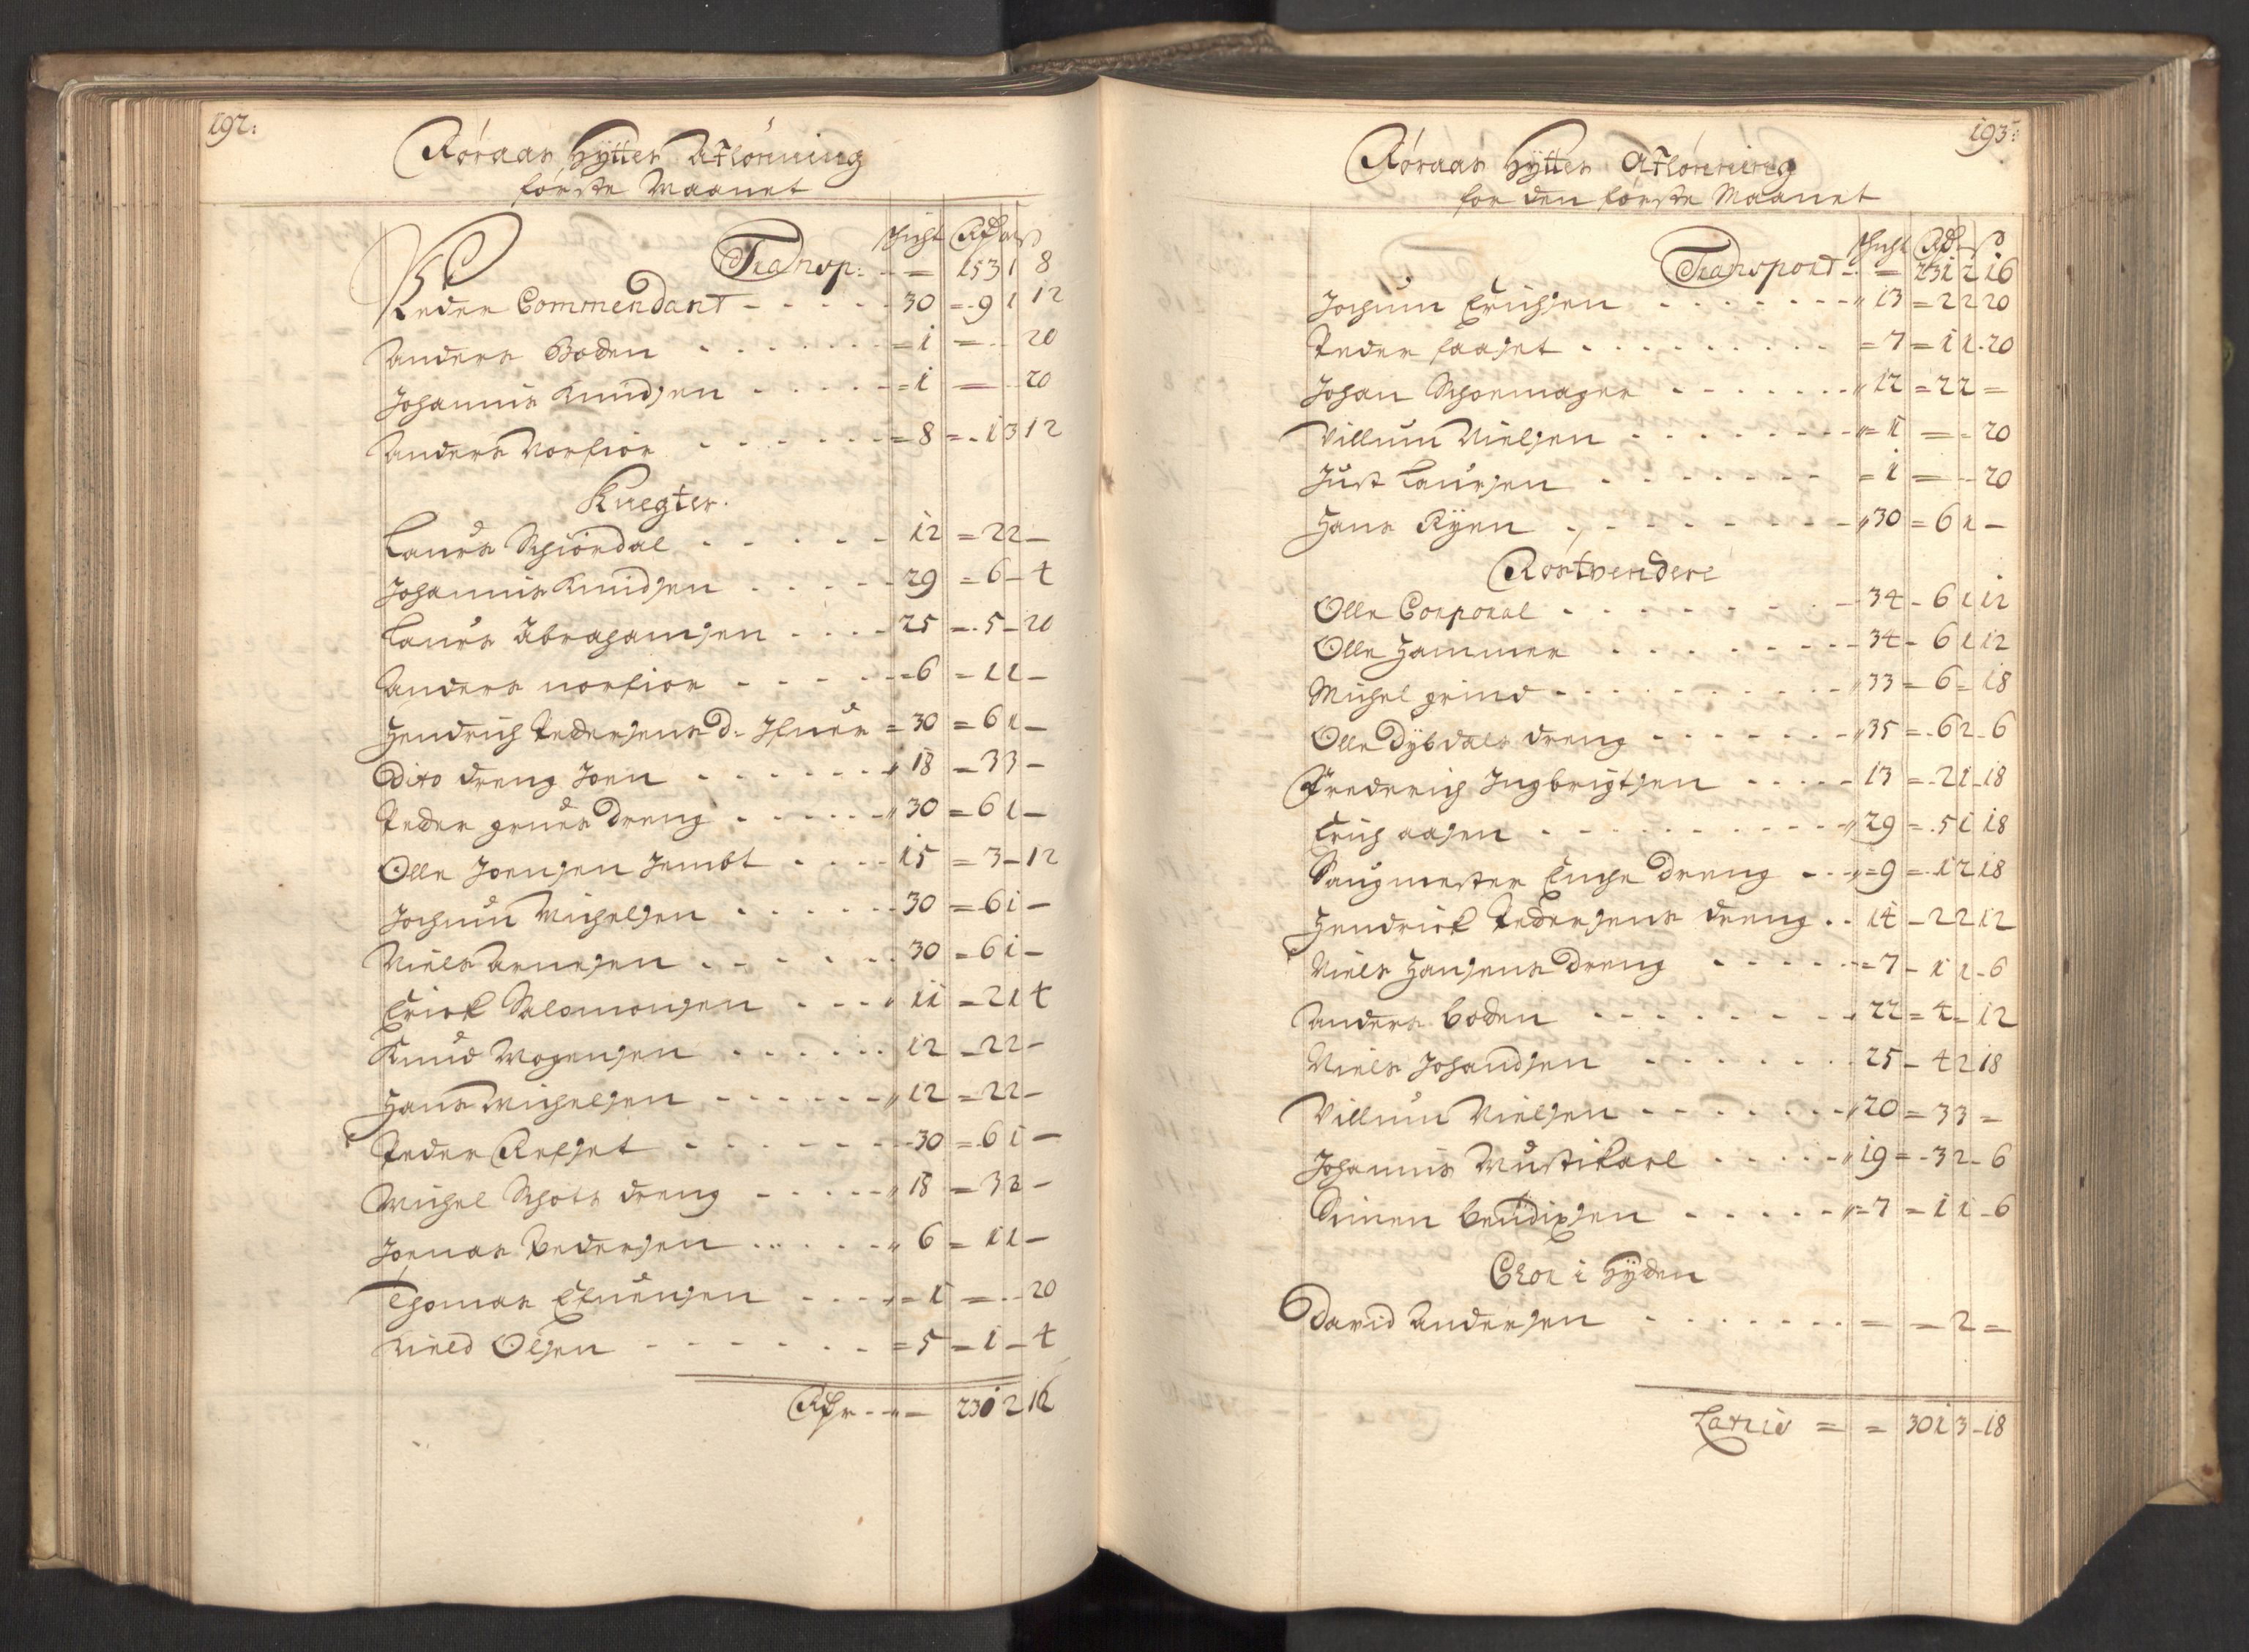 192:
Røraas Hytter Afflønning
første Maanet
Schicht Rdr ort ß
Transp: - - = 153 1 8
Peder Commendant - - - - - 30 = 9 1 12
Anders Boden - - - - - - = 1 = - - 20
Johannis Knudsen - - - - - = 1 = - - 20
Anders Norfior - - - - - - = 8 = 1 3 12
Knegter.
Laurs Schiørdal - - - - - 12 = 2 2 -
Johannis Knudsen - - - - - 29 = 6 - 4
Laurs Abrahamsen - - - - 25 = 5 - 20
Anders norfior - - - - - = 6 = 1 1 -
Hendrich Pedersens D. Ifuer = 30 = 6 1 -
Dito dreng Joen - - - - - - " 18 = 3 3 -
Peder grues Dreng - - - - - " 30 = 6 1 -
Olle Joensen Jembt - - - - 15 = 3 - 12
Jochum Michelsen - - - - - - 30 = 6 1 -
Niels Arnesen - - - - - - 30 = 6 1 -
Erick Salomonsen - - - " 11 = 2 1 4
Knud Mogensen - - - - - - 12 = 2 2 -
Hans Michelsen - - - - - - " 12 = 2 2 -
Peder Refset - - - - - - - 30 = 6 1 -
Michel Schots dreng - - - - - " 18 = 3 3 -
Joenas Pedersen - - - - - " 6 = 1 1 -
Thomas Efuensen - - - - = 1 = - - 20
Nield Olsen - - - - - - - = 5 = 1 - 4
- - " - 231 2 16
193:
Røraas Hytter Afflønning
for den første Maanet
Schicht Rdr - ß
Transport - - = 231 2 16
Jochum Erichsen - - - - - - - " 13 = 2 2 20
Peder faaset - - - - - - - - - = 7 = 1 1 - 20
Johan Schoemager - - - - - - - " 12 = 2 2 =
Villum Nielsen - - - - - - - - " = 1 = - 20
Just Laursen - - - - - - - = 1 = - - 20
Hans Ryen - - - - - - - - - " 30 = 6 1 -
Røstvendere
Olle Corporal - - - - - - - - 34 - 6 1 12
Olle Hammer - - - - - - - - 34 - 6 1 12
Michel grind - - - - - - - - - - " 33 = 6 = 18
Olle Dybdals dreng - - - - - - - " 35 = 6 2 - 6
Frederich Ingbrigtsen - - - - - 13 = 2 1 - 18
Erich aasen - - - - - - - - - - " 29 = 5 1 18
Saugmester Enche Dreng - - " = 9 = 1 2 18
Hendrick Pedersens dreng - - 14 - 2 2 12
Niels Hansens Dreng - - - - - = 7 - 1 1 - 6
Anders boden - - - - - - - - - 22 = 4 = 12
Niels Johandsen - - - - - - - 25 - 4 2 18
Villum Nielsen - - - - - - - " 20 = 3 3 =
Johannis Mustikarl - - - - - " 19 = 3 2 - 6
Simen bendixsen - - - - - " = 7 = 1 1 - 6
Chor i Hyden
David Andersen - - - - - - - = = 2 =
Latris = = 301 3 - 18